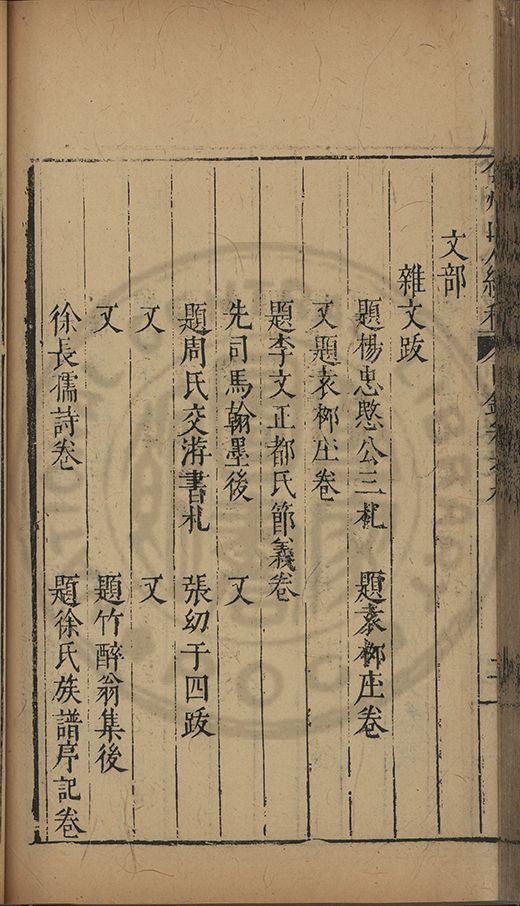 文部
雜文跋
題楊忠愍公三札 題袁柳庄卷
又題袁柳庄卷
題李文正都氏節義卷
先司馬翰墨後 又
題周氏交游書札 張幼于四跋
又 又
又 題竹醉翁集後
徐長孺詩卷 題徐氏族譜序記卷